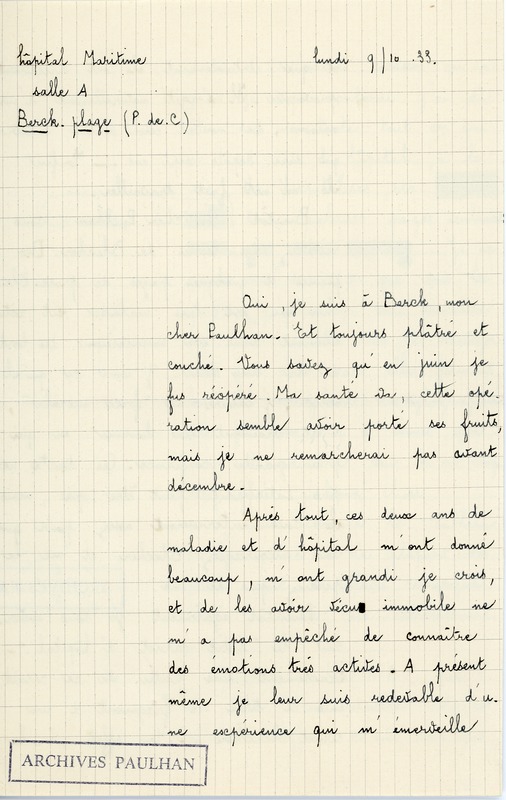 hôpital Maritime
lundi 9/10.33.
salle A
Berck-plage (P. de.C.)
Oui, je suis à Berck, mon
cher Paulhan. Et toujours plâtré et
couché. Vous savez qu'en juin je
fus réopéré. Ma santé va, cette opé-
ration semble avoir porté ses fruits,
mais je ne remarcherai pas avant
décembre.
Après tout, ces deux ans de
maladie et d'hôpital m'ont donné
beaucoup, m'ont grandi je crois,
et de les avoir vécu immobile ne
m'a pas empêché de connaître
des émotions très actives. A présent
même je leur suis redevable d'u-
ne expérience qui m'émerveille
ARCHIVES PAULHAN